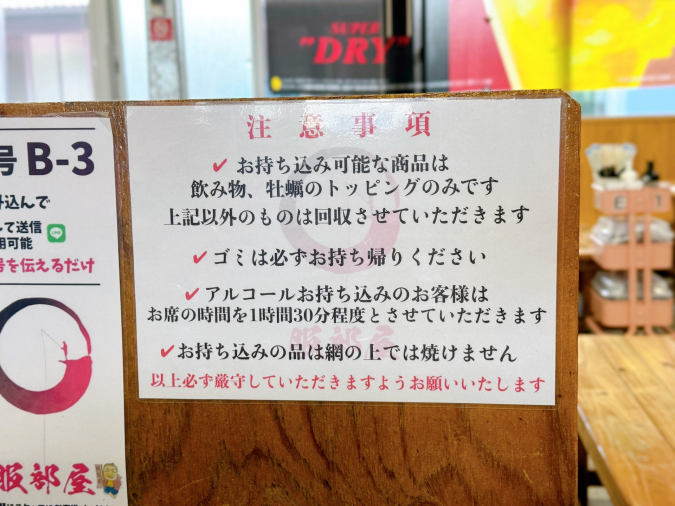 SUPER
"DRY"
注意事項
✓お持ち込み可能な商品は
飲み物、牡蠣のトッピングのみです
上記以外のものは回収させていただきます
✓ゴミは必ずお持ち帰りください
✓アルコールお持ち込みのお客様は
お席の時間を1時間30分程度とさせていただきます
✓お持ち込みの品は網の上では焼けません
以上必ず厳守していただきますようお願いいたします
号 B-3
込んで
して送信
用可能
号を伝えるだけ
服部屋